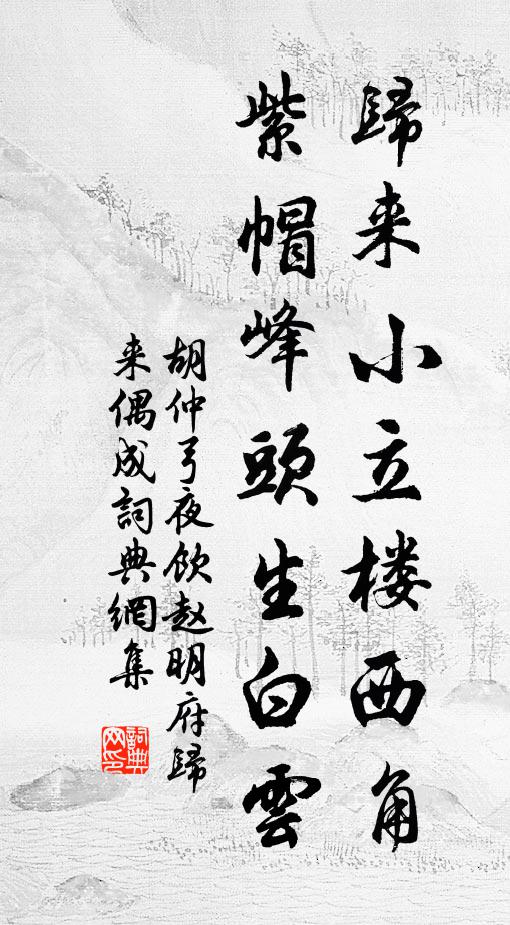 歸来小立楼西角
紫帽峰頭生白雲
胡仲弓夜飲赵明府歸
来偶成詞典網集
詞典網印